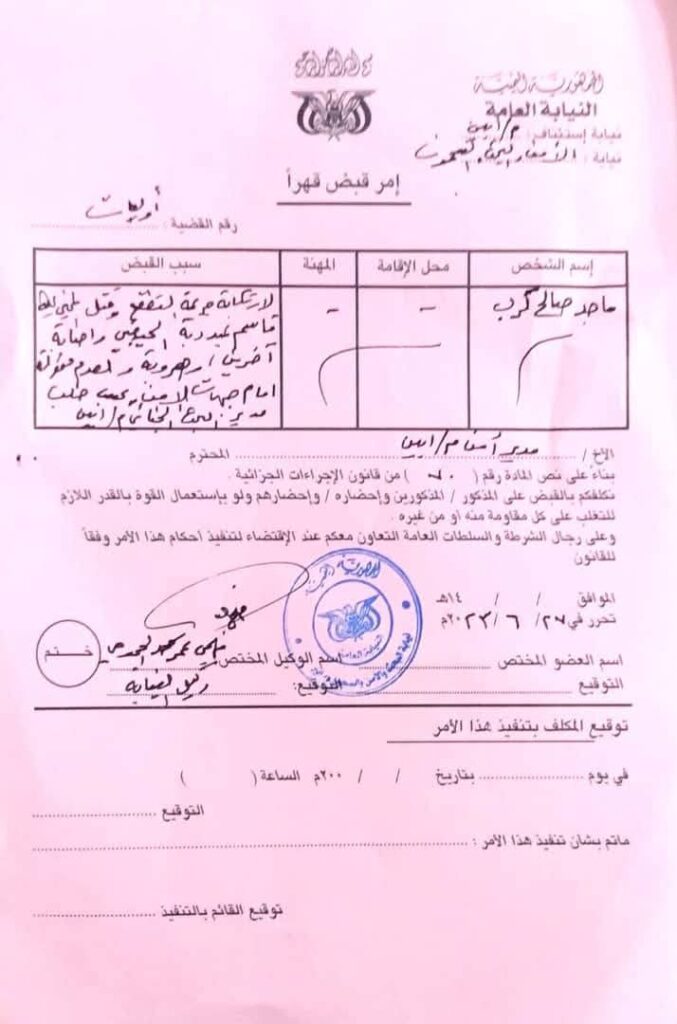 الجمهورية اليمنية
النيابة العامة
نيابة إستئناف: م/ أبين
نيابة:
إمر قبض قهراً
رقم القضية: أوليات
إسم الشخص
محل الإقامة
المهنة
سبب القبض
ماجد صالح كرب
-
-
لارتكابه جريمة التقطع وقتل
قاسم
آخرين
امام جهات الامن بحسب طلب
مدير البحث الجنائي م/ ابين
الأخ / مدير أمن م/ ابين المحترم
بناء على نص المادة رقم ( ٧٠ ) من قانون الإجراءات الجزائية .
نكلفكم بالقبض على المذكور / المذكورين وإحضاره / وإحضارهم ولو بإستعمال القوة بالقدر اللازم
للتغلب على كل مقاومة منه أو من غيره .
وعلى رجال الشرطة والسلطات العامة التعاون معكم عند الإقتضاء لتنفيذ أحكام هذا الأمر وفقاً
للقانون
الموافق / / ١٤هـ
تحرر في ٢٧/ ٦ /٢٠٢٣م
اسم العضو المختص
اسم الوكيل المختص
ختم
التوقيع
التوقيع: وكيل النيابة
توقيع المكلف بتنفيذ هذا الأمر
في يوم بتاريخ / / ٢٠٠م الساعة ( )
التوقيع
ماتم بشان تنفيذ هذا الأمر :
توقيع القائم بالتنفيذ